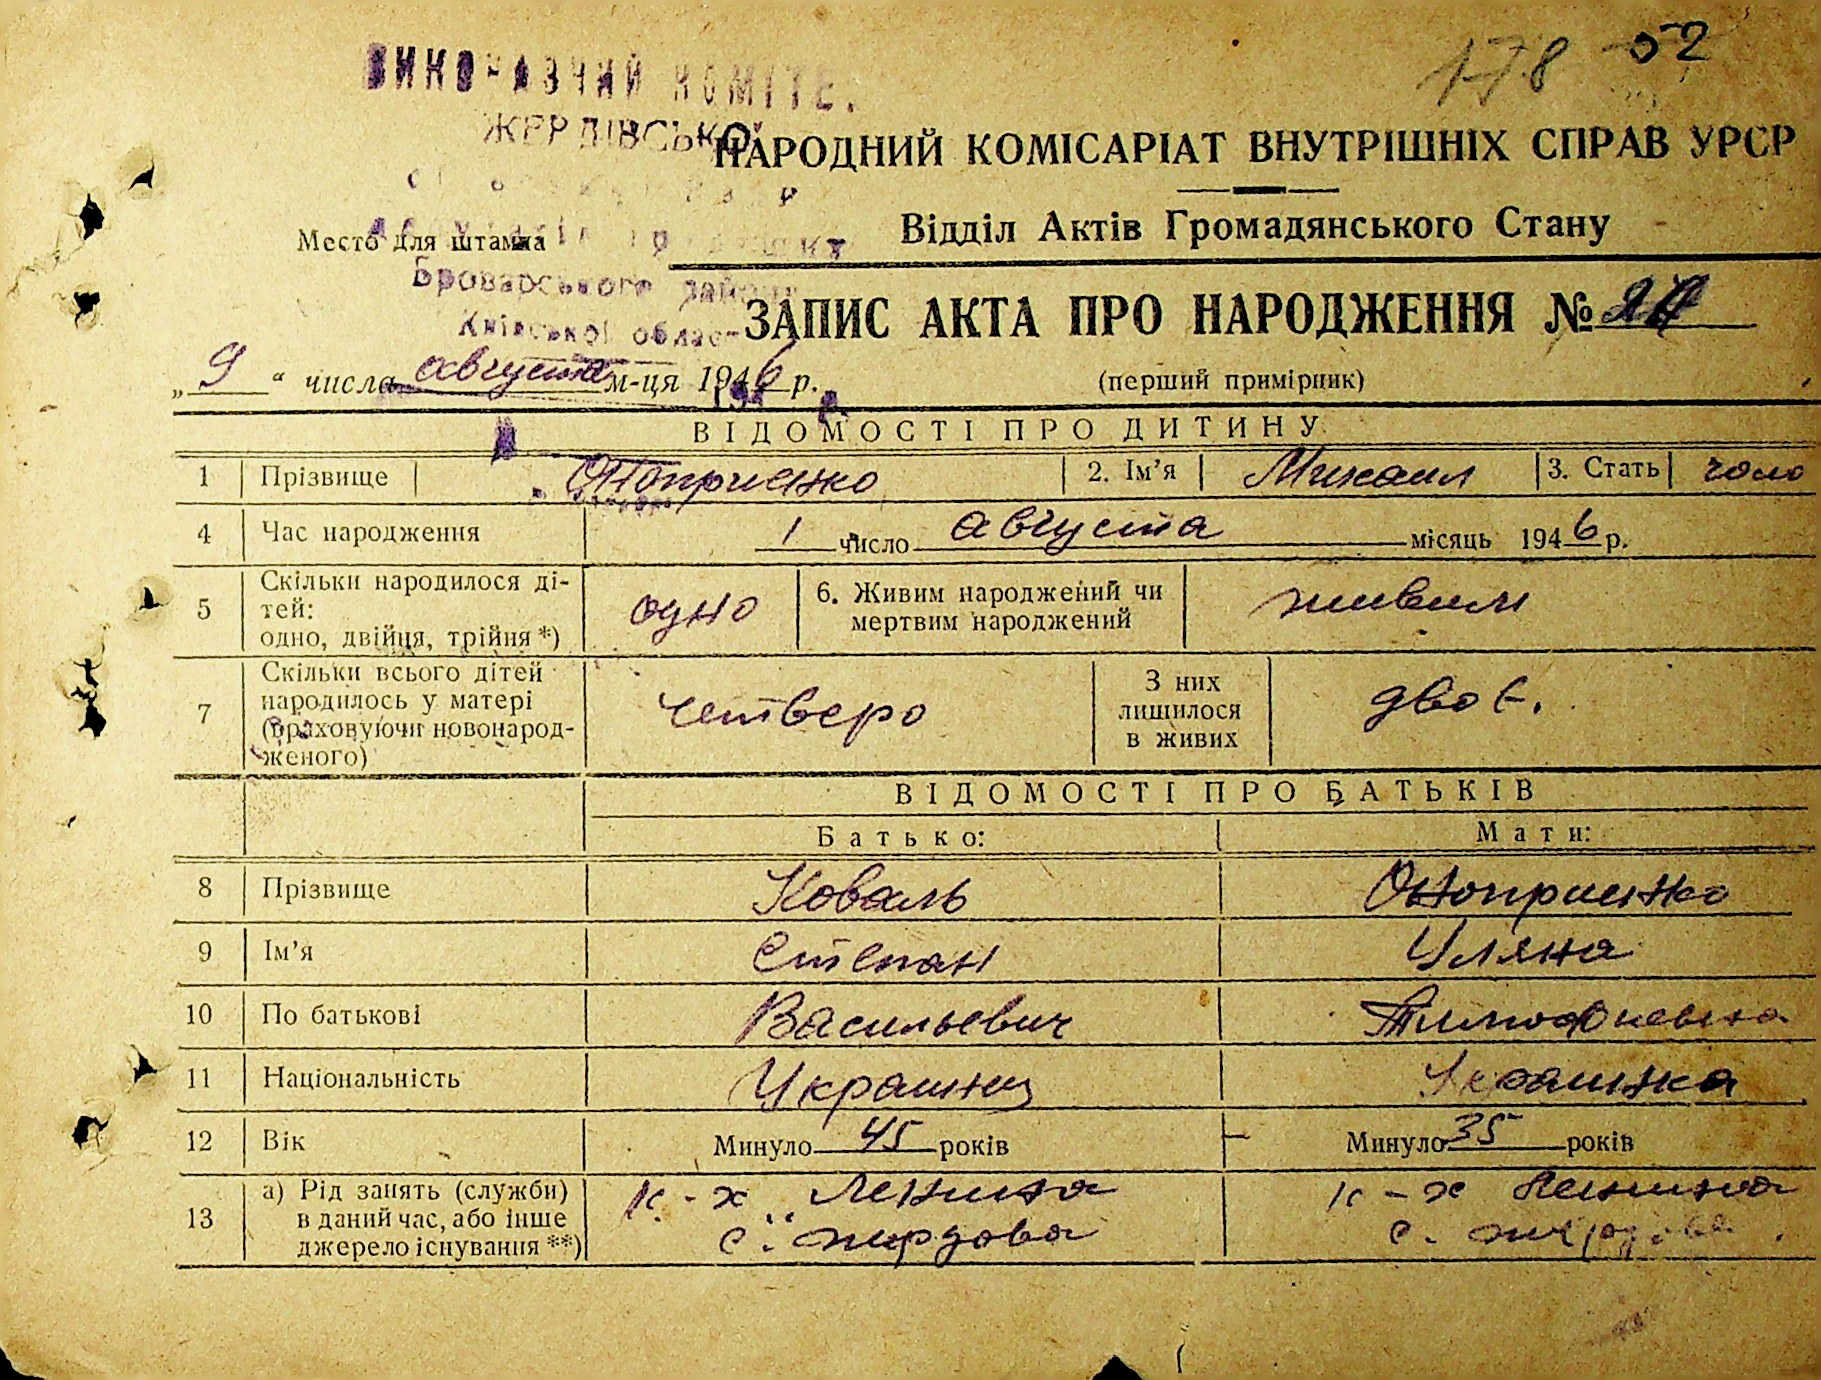 178 52
ЖЕРДІВСЬКО
НАРОДНИЙ КОМІСАРІАТ ВНУТРІШНІХ СПРАВ УРСР
Відділ Актів Громадянського Стану
Место для штампа
Броварського району
Київської облас
ЗАПИС АКТА ПРО НАРОДЖЕННЯ №
„ 9 “ числа августа м-ця 1946 р.
(перший примірник)
ВІДОМОСТІ ПРО ДИТИНУ
1 Прізвище Оноприенко 2. Ім’я Михаил 3. Стать чоло
4 Час народження 1 число августа місяць 1946 р.
5 Скільки народилося ді-
тей:
одно, двійня, трійня *) одно 6. Живим народжений чи
мертвим народжений живим
7 Скільки всього дітей
народилось у матері
(враховуючи новонарод-
женого) четверо З них
лишилося
в живих двоє.
ВІДОМОСТІ ПРО БАТЬКІВ
Батько: Мати:
8 Прізвище Коваль Оноприенко
9 Ім’я Степан Уляна
10 По батькові Васильевич Тимофиевна
11 Національність Украинец Украинка
12 Вік Минуло 45 років Минуло 35 років
13 а) Рід занять (служби)
в даний час, або інше
джерело існування **) к-х Ленина
с. жердова
к-х Ленина
с. жердова